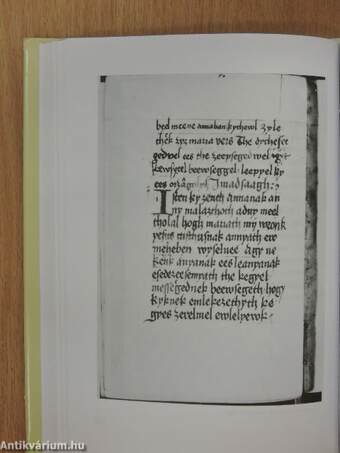 hed meene annaban kythewl zyle
thek zyz maria veis The dychesee
gedwel ees the zeepseged wel
beewseggel leeppel ky
ees orzagolyh Imadsaagh
Isten ky zenth Annanak an
ny malazthoth adny meel
tholal hogh mariath my
yesus annyath ew
meheben wyselnee agy ne
kenk anyanak ees leanyanak
esedezeesenyath the kegyel
messegednek beewsegeth hogy
kyknek emlekezethyth ke
gyes zerelmel ewlelyewk
Antikvárium.hu